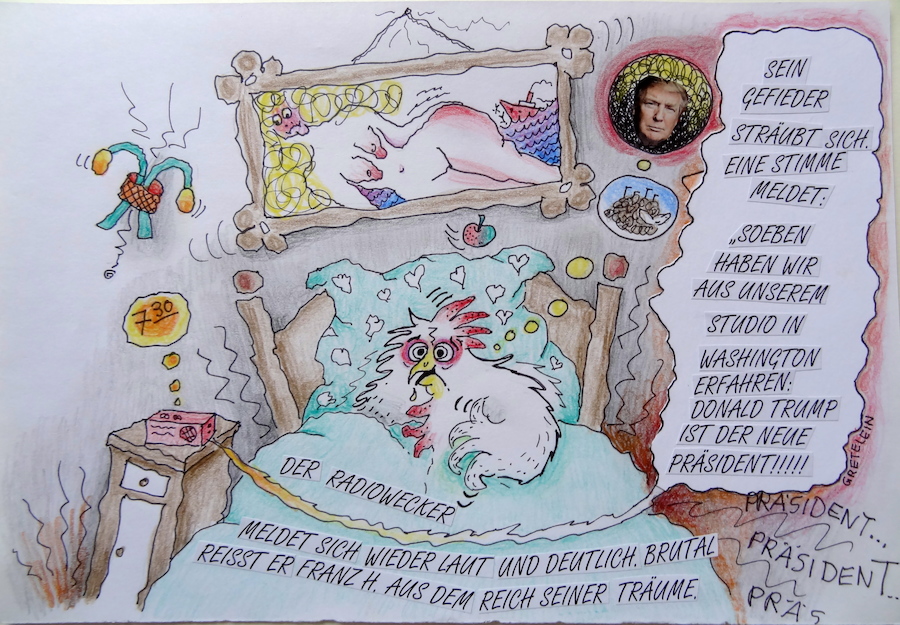 7 30
DER RADIOWECKER
MELDET SICH WIEDER LAUT UND DEUTLICH. BRUTAL
REISST ER FRANZ H. AUS DEM REICH SEINER TRÄUME.
SEIN
GEFIEDER
STRÄUBT SICH.
EINE STIMME
MELDET:
„SOEBEN
HABEN WIR
AUS UNSEREM
STUDIO IN
WASHINGTON
ERFAHREN:
DONALD TRUMP
IST DER NEUE
PRÄSIDENT!!!!!
GRETELEIN
PRÄSIDENT...,
PRÄSIDENT...
PRÄS